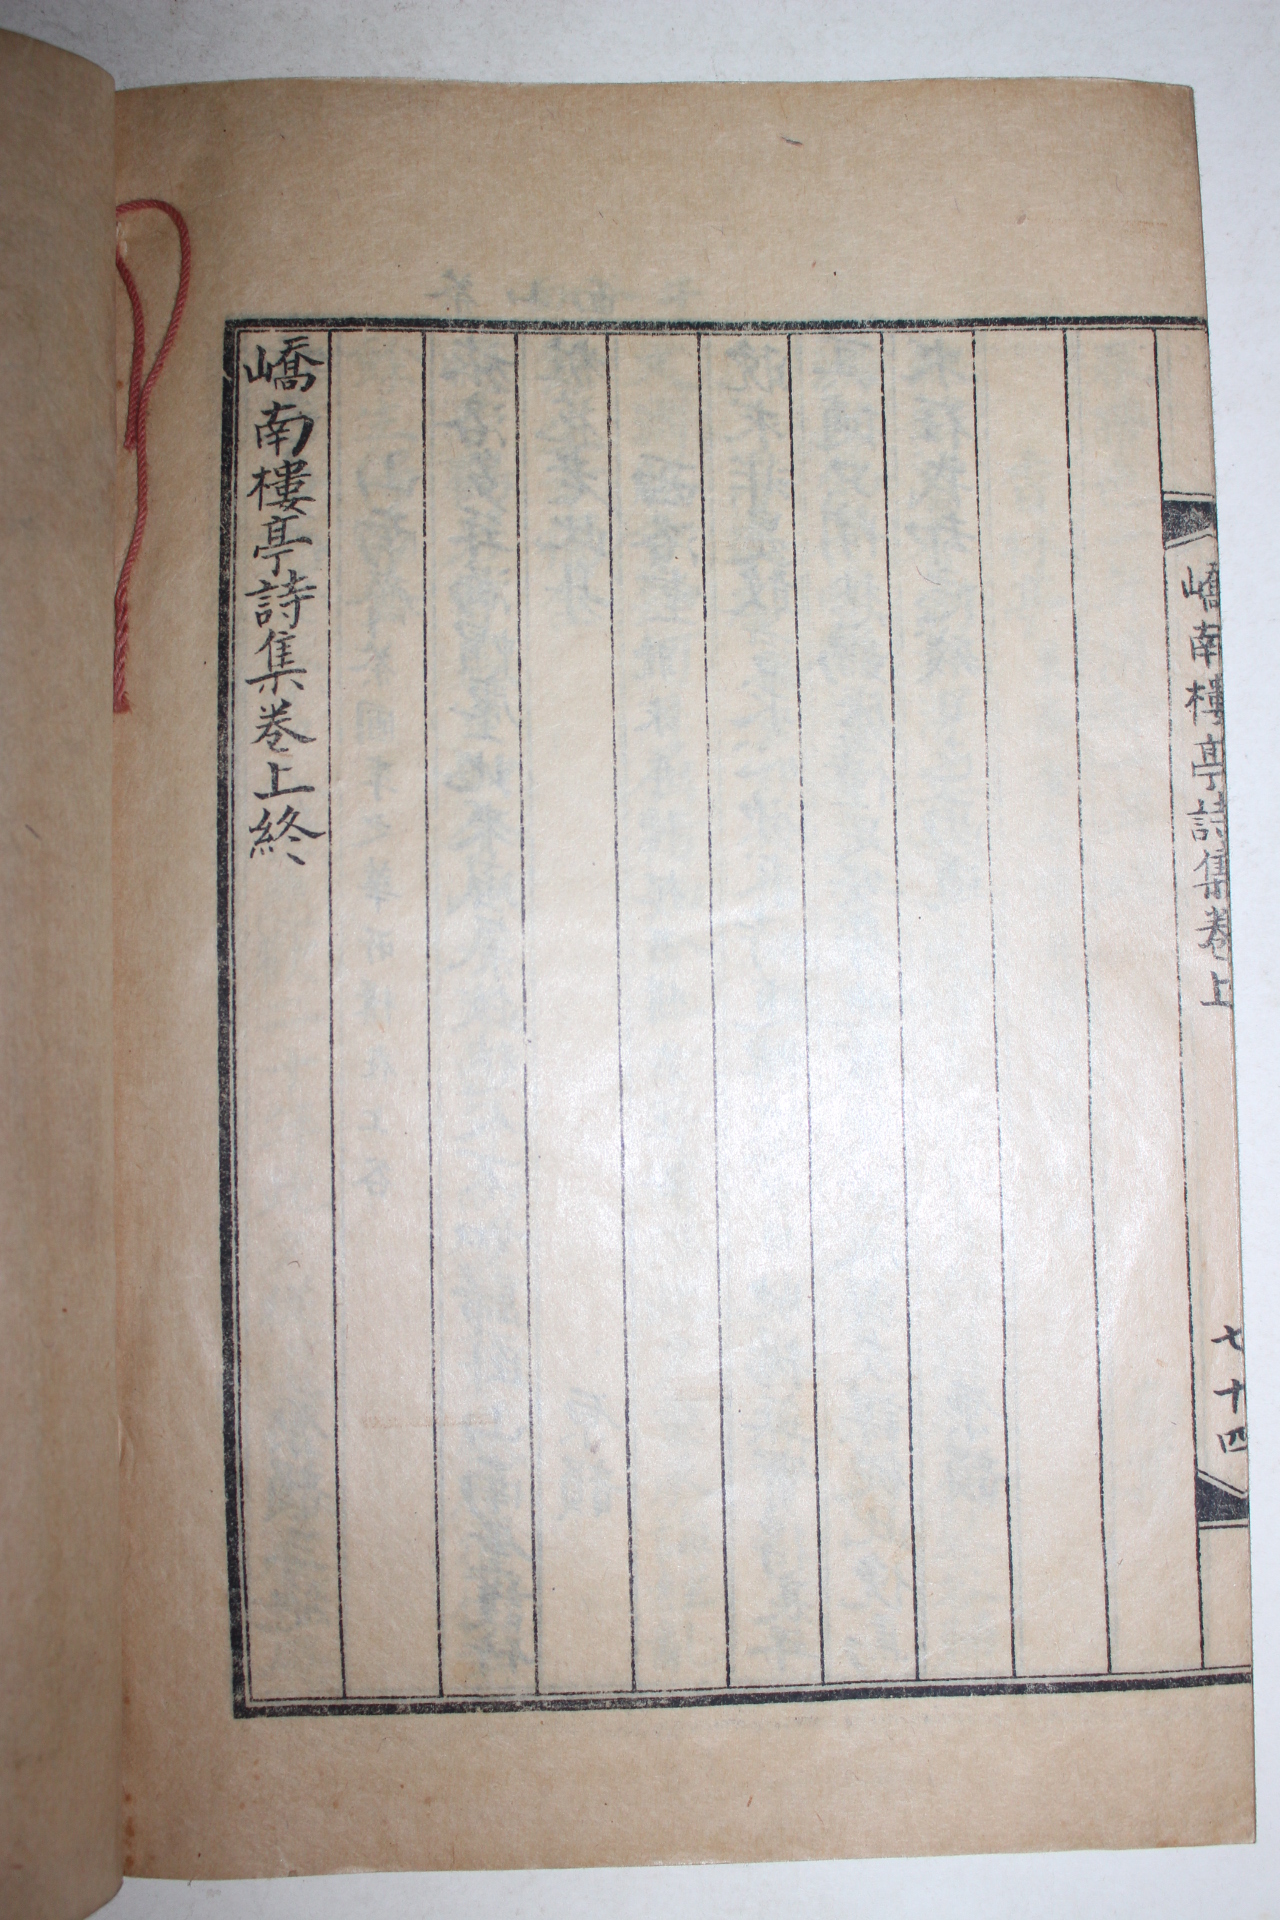 嶠南樓亭詩集卷上
七十四
嶠南樓亭詩集卷上終